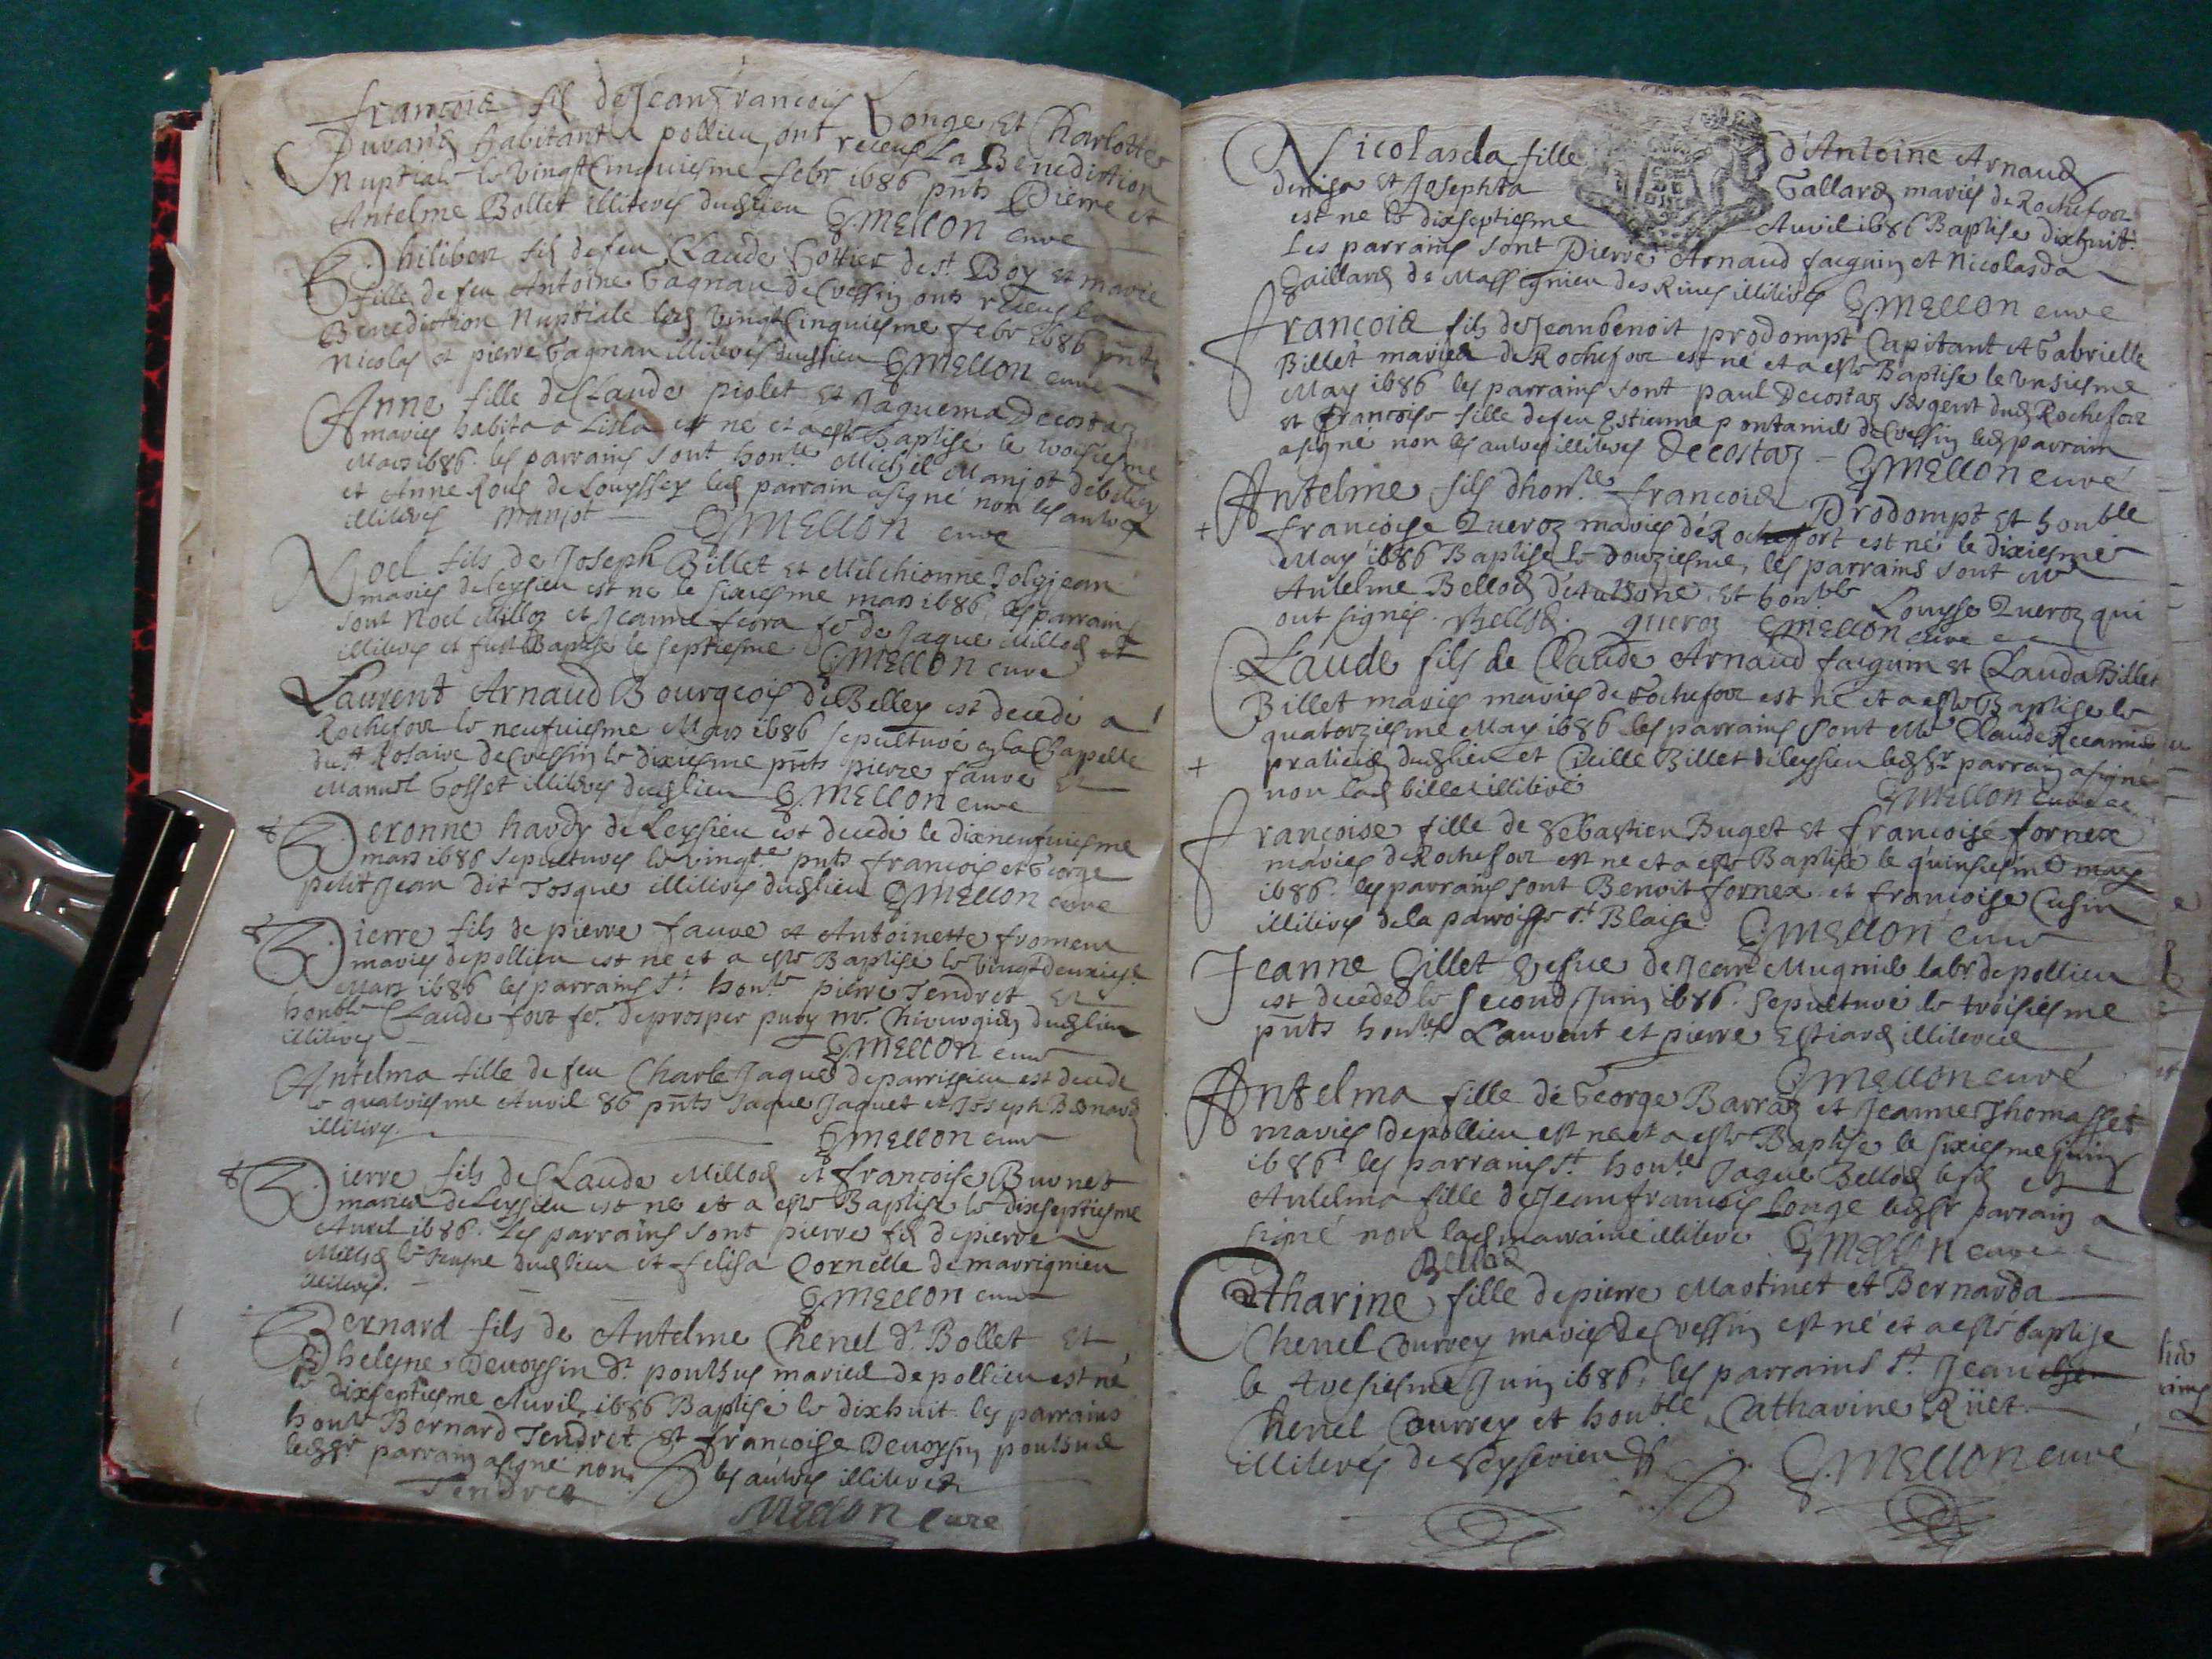 francois fils de Jean francois Longe et Charlotte
Durand habitant a pollieu ont receus La Benediction
Nuptiale le vingtcinquiesme febr 1686 pnts Pierre et
Antelme Bollet illiteres dudlieu G MELLON cure
Philibert fils de feu Claude Gottier de st Boy et marie
fille de feu Antoine Gagnau de Cressin ont receus la
Benediction Nuptiale led vingtcinquiesme febr 1686 pnts
Nicolas et pierre Gagnau illiteres dudlieu G MELLON cure
Anne fille de Claude piolet et Jaquema Decostaz
maries habita a Lisla est ne et a este Baptise le troisiesme
Mars 1686 les parrains sont honble Michel Manjot debelley
et Anne Rous de Louyssey led parrain a signé non les autres
illiteres manjot G MELLON cure
Noel fils de Joseph Billet et Melchionne Jolyjean
maries de Leysieu est ne le sixiesme mars 1686, les parrains
sont Noel Millioz et Jeanne feora fe de Jaque Milliod et
illiteres et fust Baptise le septiesme G MELLON cure
Laurent Arnaud Bourgeois de Belley est decede a
Rochefort le neufuiesme Mars 1686 sepulturé en la Chappelle
du st Rosaire de Cressin le dixiesme pnts pierre faure et
Manuel Gosset illiteres dudlieu G MELLON cure
Peronne hardy de Leysieu est decede le dixneufuiesme
mars 1686 sepulturee le vingte pnts francois et George
petit Jean dit Josque illiteres dudlieu G MELLON cure
Pierre fils de pierre faure et Antoinette froment
maries de pollieu est ne et a este Baptise le vingtdeuxies
Mars 1686 les parrains st honble pierre Tendret et
honble Claude fort fe de prosper puoy mr Chirurgien dudlieu
illiteres G MELLON cure
Antelma fille de feu Charle Jaques de parrissieu est decede
le quatriesme Auril 86 pnts Jaque Jaquet et Joseph Bernard
illiteres G MELLON cure
Pierre fils de Claude Milliod et francoise Burnet
maries de Leysieu est ne et a este Baptise le dixseptiesme
Auril 1686. les parrains sont pierre fils de pierre
Milliod le Jeusne dudlieu et felisa Cornelle de maurignieu
illiteres. G MELLON cure
Bernard fils de Antelme Chenel dt Bollet et
Phelyne Deuoysin dt pouthus maries de pollieu est né
le dixseptiesme Auril 1686 Baptisé le dixhuit les parrains
honble Bernard Tendret et francoise Deuoysin pouthus
led sr parrain a signé non les autres illiteres
Tendret
MELLON Cure
Nicolasda fille d'Antoine Arnaud
denisa et Josephta Gallard maries de Rochefort
est ne le dixseptiesme Auril 1686 Baptise dixhuit.
Les parrains sont Pierre Arnaud facquin et Nicolasda
Gaillard de Massegnieu des Rives illiteres G MELLON cure
Francois fils de Jeanbenoit prodompt Capitant et Gabrielle
Billet maries de Rochefort est né et a este Baptise le vnsiesme
May 1686 les parrains sont paul Decostaz sergent dud Rochefort
et francoise fille de feu Estienne pontanier de Cressin led parrain
a signe non les autres illiteres Decostaz G MELLON curé
Antelme fils dhonble francois Prodompt et honble
francoise Queroz maries de Rochefort est né le dixiesme
May 1686 Baptise le douziesme, les parrains sont mr
Antelme Bellod d'Aulsone, et honble Louyse Queroz qui
ont signés. Bellod. queroz G MELLON cure
Claude fils de Claude Arnaud facquin et Clauda Billet
Billet maries maries de Rochefort est ne et a este Baptise le
quatorziesme May 1686 les parrains sont Mr Claude Recamier
praticien dudlieu et Cicille Billet de leysieu led sr parrain a signe
non lad billet illiteré G MELLON cure
Françoise fille de Sebastien Buget et francoise fornex
maries de Rochefort est ne et a este Baptise le quinsiesme may
1686. les parrains sont Benoit fornex et francoise Cusin
illiteres de la parroisse st Blaise G MELLON cure
Jeanne Gillet vefue de Jean Mugnier labr. de pollieu
est decedee le second Juin 1686. Sepulturé le troisiesme
pnts honbles Laurent et pierre Estiard illiteres
G MELLON curé
Antelma fille de George Barraz et Jeanne Thomasset
maries de pollieu est ne et a este Baptise le sixiesme Juin
1686 les parrains st honble Jaque Bellod le fils et
Antelma fille de Jean francois Longe led sr parrain a
signé non lad marraine illitere G MELLON cure
Bellod
Catharine fille de pierre Martinet et Bernarda
Chenel Courrey maries de Cressin est né et a esté baptise
le tresiesme Juin 1686, les parrains st. Jean
Chenel Courrey et honble Catharine Rüet
illiterés de Seysserieu G MELLON curé